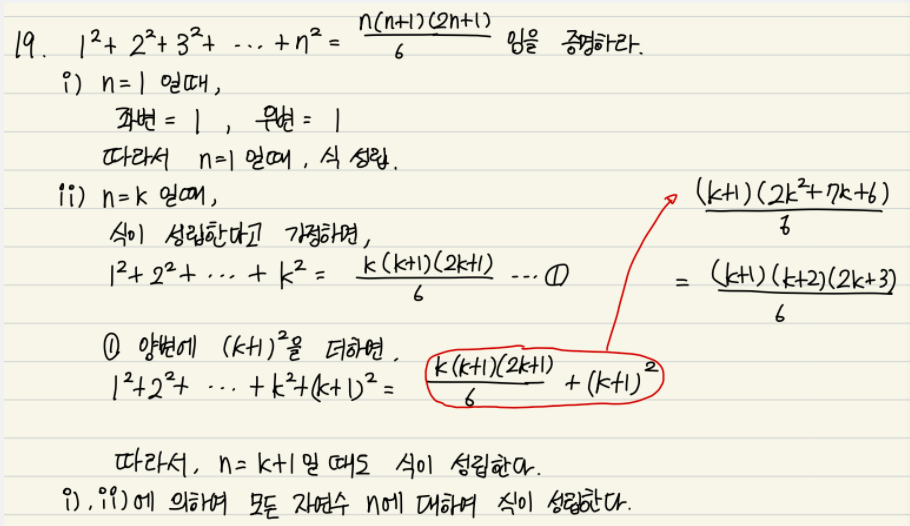 19. 1²+2²+3²+ ⋯ +n² = n(n+1)(2n+1)/6 임을 증명하라.
i) n=1 일때,
좌변 = 1 , 우변 = 1
따라서 n=1 일때, 식 성립.
ii) n=k 일때,
식이 성립한다고 가정하면,
1²+2²+ ⋯ +k² = k(k+1)(2k+1)/6 ⋯ ①
① 양변에 (k+1)²을 더하면,
1²+2²+ ⋯ +k²+(k+1)² = k(k+1)(2k+1)/6 + (k+1)²
(k+1)(2k²+7k+6)/6
= (k+1)(k+2)(2k+3)/6
따라서, n=k+1일 때도 식이 성립한다.
i), ii)에 의하여 모든 자연수 n에 대하여 식이 성립한다.